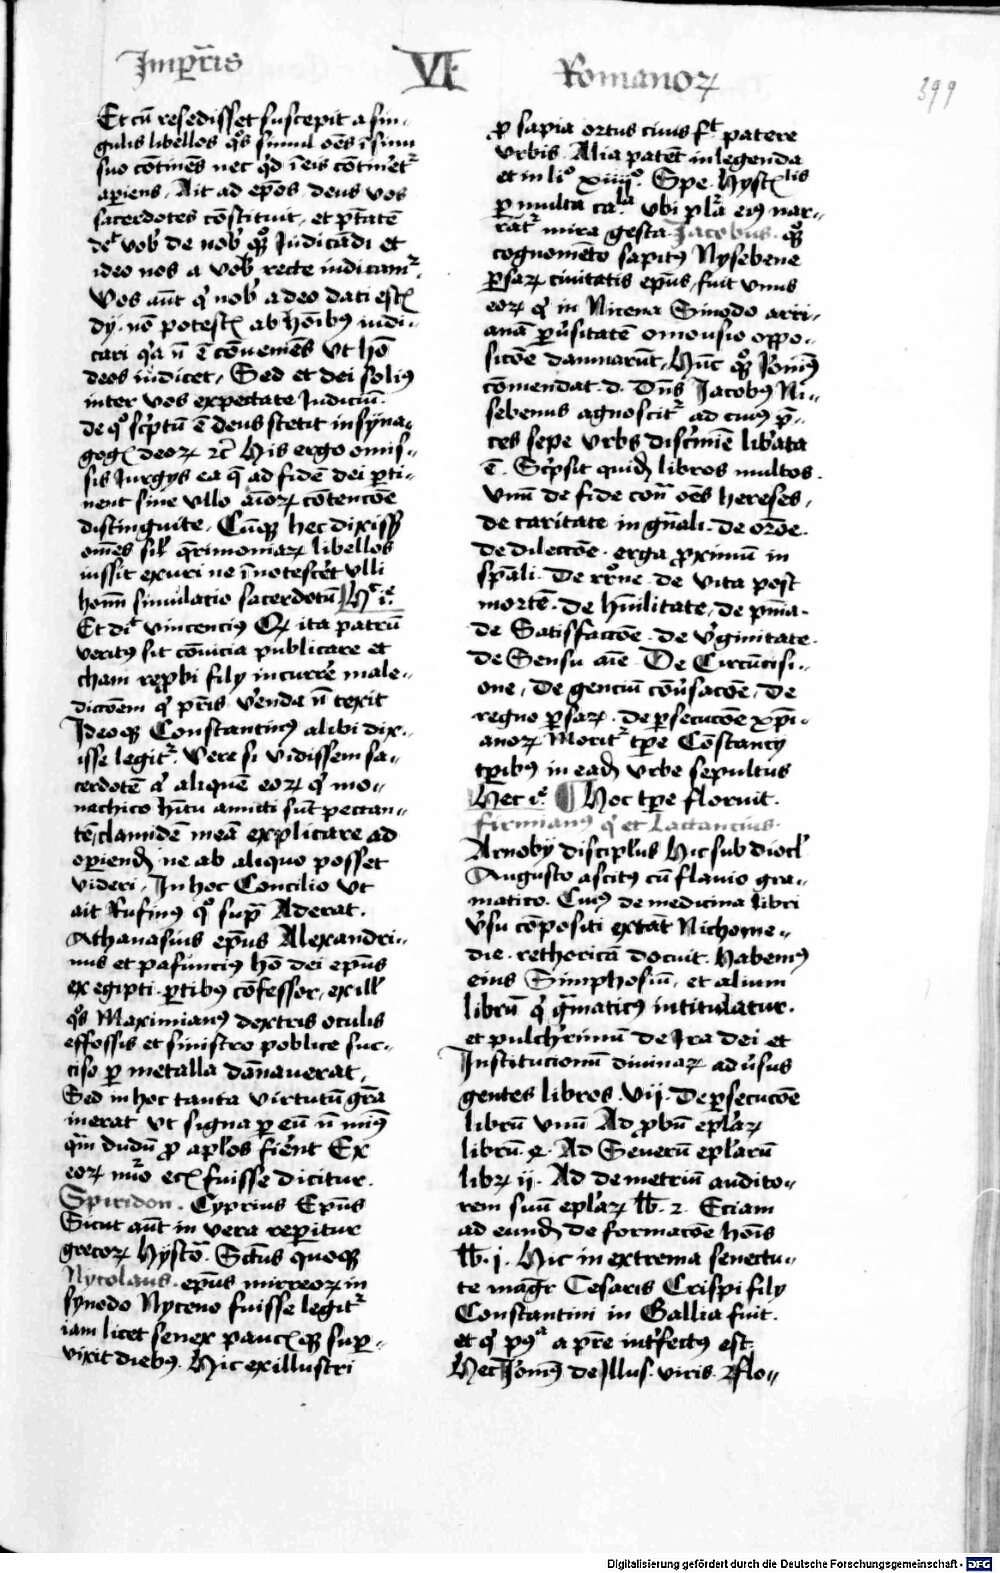 Imp̄ris VI Romanoꝝ
399
Et cū resedisset suscepit a sin-
gulis libellos qͦs simul oēs ī sinu
suo cōtinēs nec qd̓ ī eis cōtinet̄
aperiens. Ait ad ep̄os. deus vos
sacerdotes cōstituit. et p̄tatē
de vob̓ de nob̓ qͦꝫ Judicādi et
ideo nos a vob̓ recte iudicam̄.
Vos aūt q̓ nob̓ a deo dati estꝭ
dij. nō potestꝭ ab hōibꝰ iudi-
cari q̓a n̄ ē cōueniēs vt hō
deos iudicet. Sed et dei soliꝰ
inter vos expectate Judiciū.
de qͦ sc̓ptū ē deus stetit in syna-
gogꝭ deoꝝ ⁊c̄ His ergo omis-
sis Jurgijs ea q̄ ad fidē dei ꝑti-
nent sine vllo aīoꝝ cōtencōe
distinguite. Cūqꝫ hec dixissꝫ
omēs sil̓ q̄rimoniaꝝ libellos
iussit exuri ne īnotesc̓et vlli
hoīm simulatio sacerdotū Hͨ iͤ.
Et di vincencius Qꝫ ita patrū
veritꝰ sit cōuicia publicare et
cham rep̄bi filij incurrē male-
dictōem q̓ p̄ris v̓enda n̄ texit
Ideoqꝫ Constantinꝰ alibi dix-
isse legit̄. Vere si vidissem sa-
cerdotē q̓ aliquē eoꝝ q̓ mo-
nachico hītu amicti sūt peccan-
tē, clamidē meā explicare ad
operiendū ne ab aliquo posset
videri. In hoc Concilio vt
ait Rufinꝰ qͦ sup̄ Aderat.
Athanasius ep̄us Alexandri-
nus et pafunciꝰ hō dei ep̄us
ex egipti ꝑtibus cōfessor. ex ill̓
qͦs Maximianꝰ dextris oculis
effossis et sinistro poblice suc-
ciso ꝑ metalla dānauerat.
Sed in hoc tanta virtutū grā
inerat vt signa ꝑ eū n̄ minꝰ
q̄m dudū ꝑ aplos̓ fierēt Ex
eoꝝ nūo eciꝫ fuisse dicitur.
Spiridon. Cyprius Ep̄us
Sicut aūt in vera reperitur
grecoꝝ hystōa. Sctūs quoqꝫ
Nycolaus. ep̄us mirreoꝝ in
synodo Nyceno fuisse legit̄
iam licet senex paucꝭqꝫ sup̄-
vixit diebꝰ. Hic ex illustri
ꝓsapia ortus ciuis ft̄ patere
vrbis. Alia patēt in legenda
et in liͦ xiiijͦ. Spe. hystꝭlis
ꝑ multa caͣ. vbi pl̄a eiꝰ nar-
rāt̄ mira gesta. Jacobus. qͦꝫ
cognomēto sapiēs Nysebene
ꝑsaꝝ ciuitatis ep̄us, fuit vnus
eoꝝ q̓ in Nicena Sinodo arri-
anā ꝑv̓sitatē omousio oppo-
sicōe damnarūt. Hūc qͦꝫ Jonīꝰ
cōmendat. d. Dn̄s Jacobꝰ Ni-
sebenus agnoscit̄ ad cuiꝰ p̄-
ces sepe vrbs disc̓mie lib̓ata
ē. Sc̓psit quidē libros multos.
Vnū de fide contͣ oēs hereses.
de caritate in gn̄ali. de orōe.
de dileccōe. erga ꝓximū in
sp̄ali. De rrōne. de vita post
mortē. de hūilitate. de pn̄ia.
de Satisfaccōe. de v̓ginitate.
de Sensu aīe. De Circūcisi-
one. De genciū cōu̓sacōe. De
regno ꝑsaꝝ. de ꝑsecucōe xp̄i-
anoꝝ Morit̄ tꝑe Cōstancij
tꝑibꝰ in eadē vrbe sepultus
Hec iͤ. ¶ Hoc tꝑe floruit.
firmianꝰ q̓ et Lactancius.
Arnobij discipl̓us Hic sub diocl̓
Augusto ascitꝰ cū flauio gra-
matico. Cuiꝰ de medicina libri
v̓su cōpositi extāt Nichome-
die. rethoricā docuit. Habemꝰ
eius Simphosiū. et alium
librū q̓ gͣmaticꝰ intitulatur.
et pulch̓rimū de Ira dei et
Institucionū diuinaꝝ adu̓sus
gentes libros. vij. De ꝑsecucōe
librū vnū Ad ꝓbū ep̄laꝝ
librū. 4. Ad Seuerū epl̓arū
libꝝ ij. Ad demetriū audito-
rem suū epl̓aꝝ lb̄. 2. Eciam
ad eundē de formacōe hōis
lb̄. j. Hic in extrema senectu-
te magr̄ Cesaris Crispi filij
Constantini in Gallia fuit.
et q̓ pꝰͣ a p̄re int̓fectꝰ est.
Hec Jonīꝰ de Illus. viris. Flo-
Digitalisierung gefördert durch die Deutsche Forschungsgemeinschaft - DFG